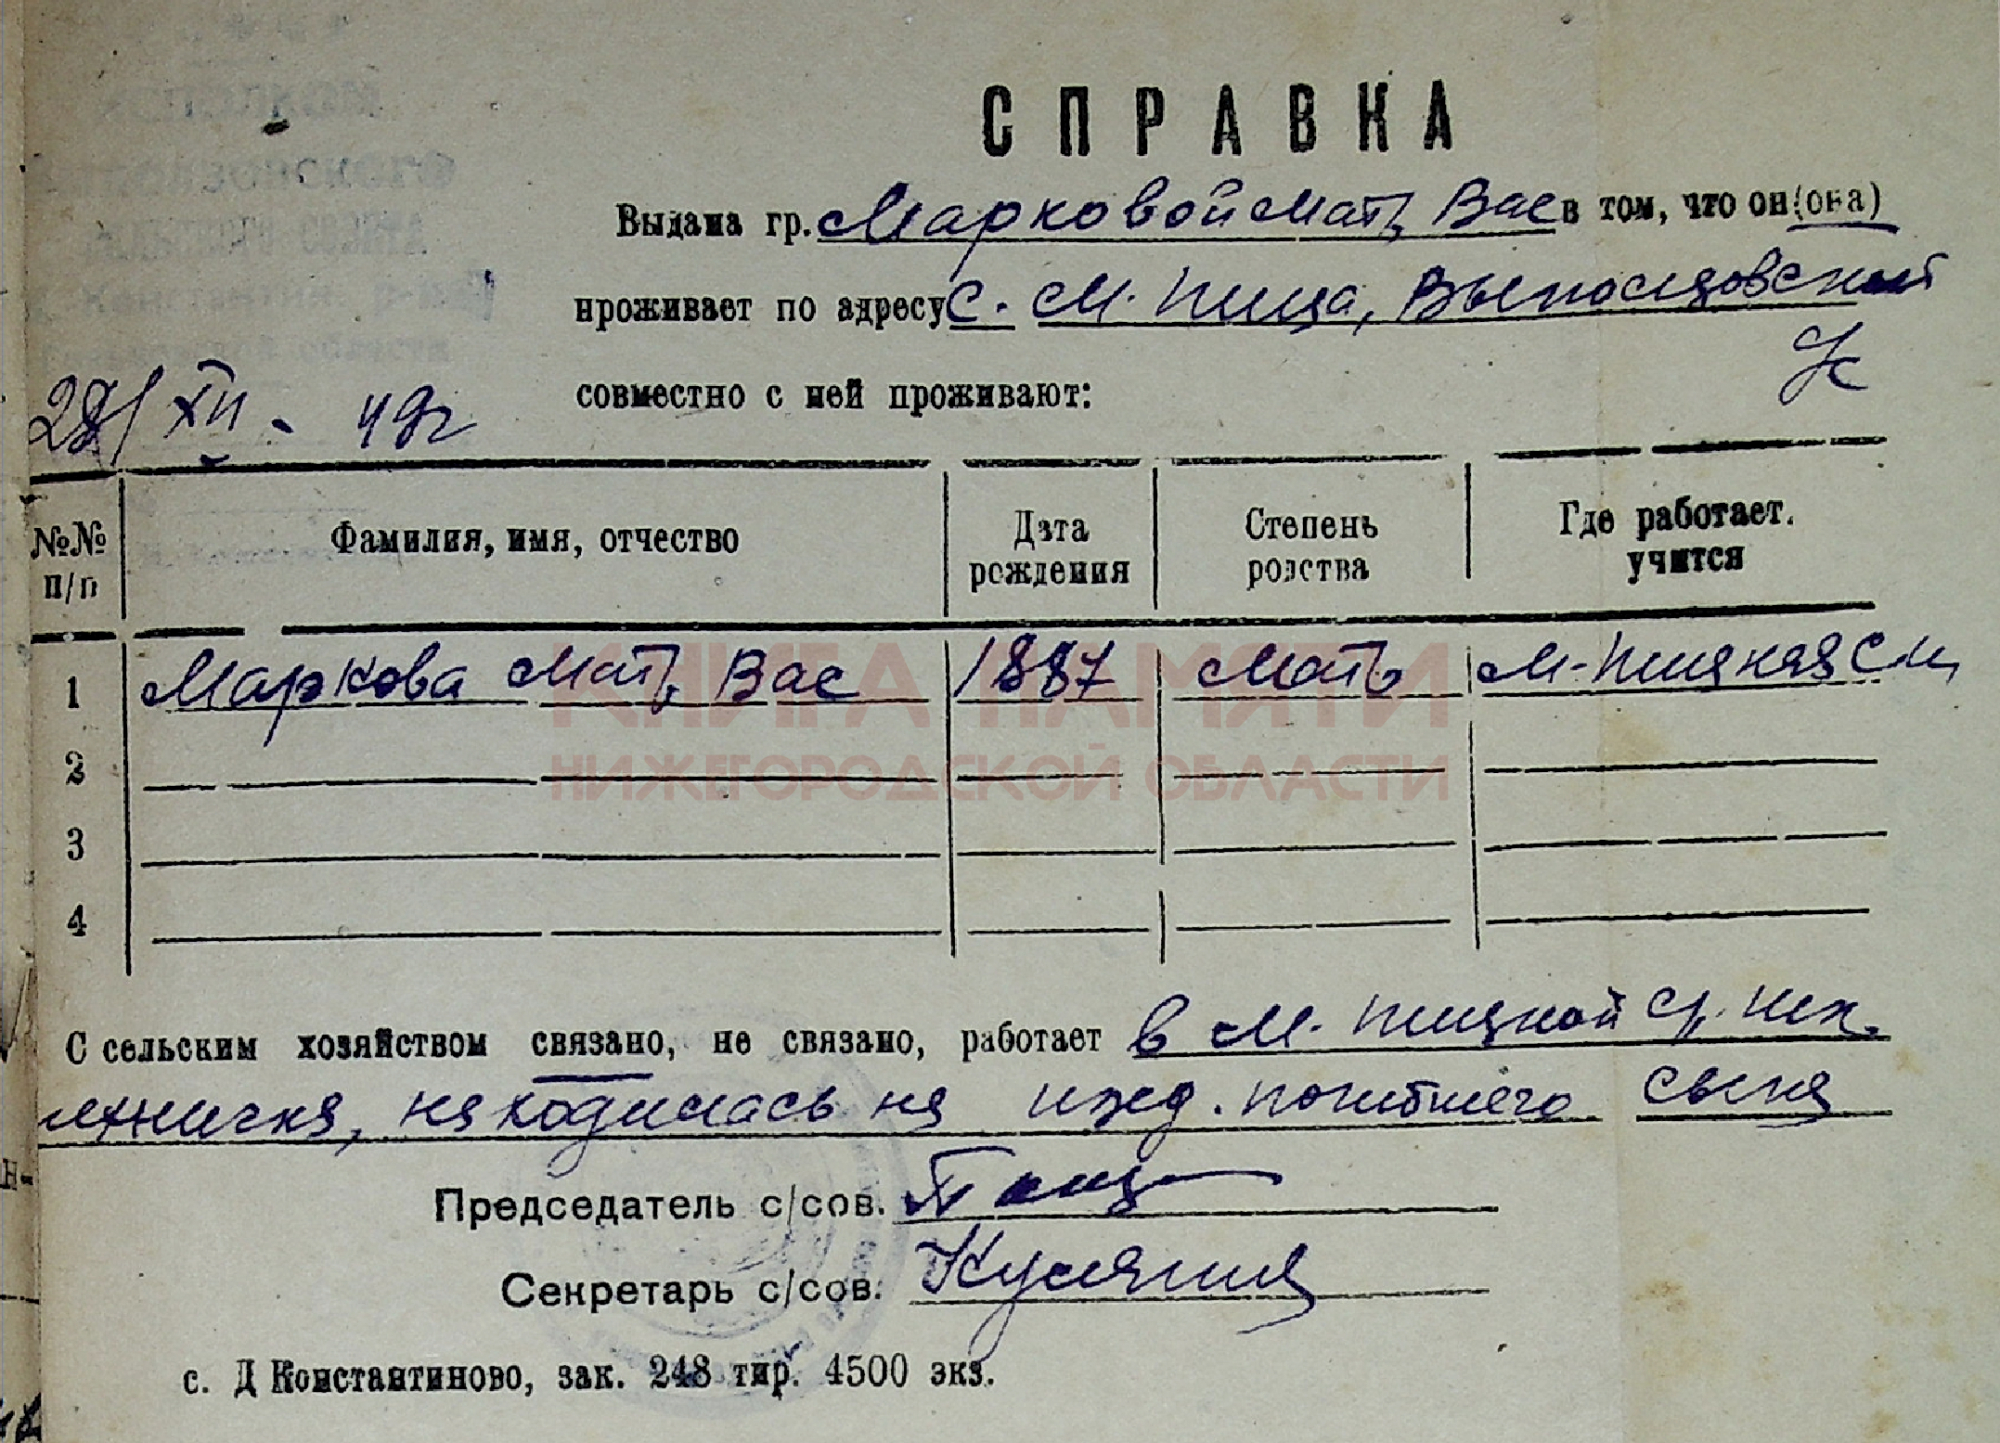 СПРАВКА
Выдана гр. Марковой Мат. Вас в том, что он (она)
проживает по адресу с. М. Пица,
совместно с ней проживают:
28/XII - 49г
№№ п/п
Фамилия, имя, отчество
Дата рождения
Степень родства
Где работает. учится
1 Маркова Мат. Вас 1887 Мать М-Пицкая
2
3
4
КНИГА ПАМЯТИ
НИЖЕГОРОДСКОЙ ОБЛАСТИ
С сельским хозяйством связано, не связано, работает в М. Пицкой ср. шк.
находилась на ижд. погибшего сына
Председатель с/сов.
Секретарь с/сов.
с. Д Константиново, зак. 248 тир. 4500 экз.